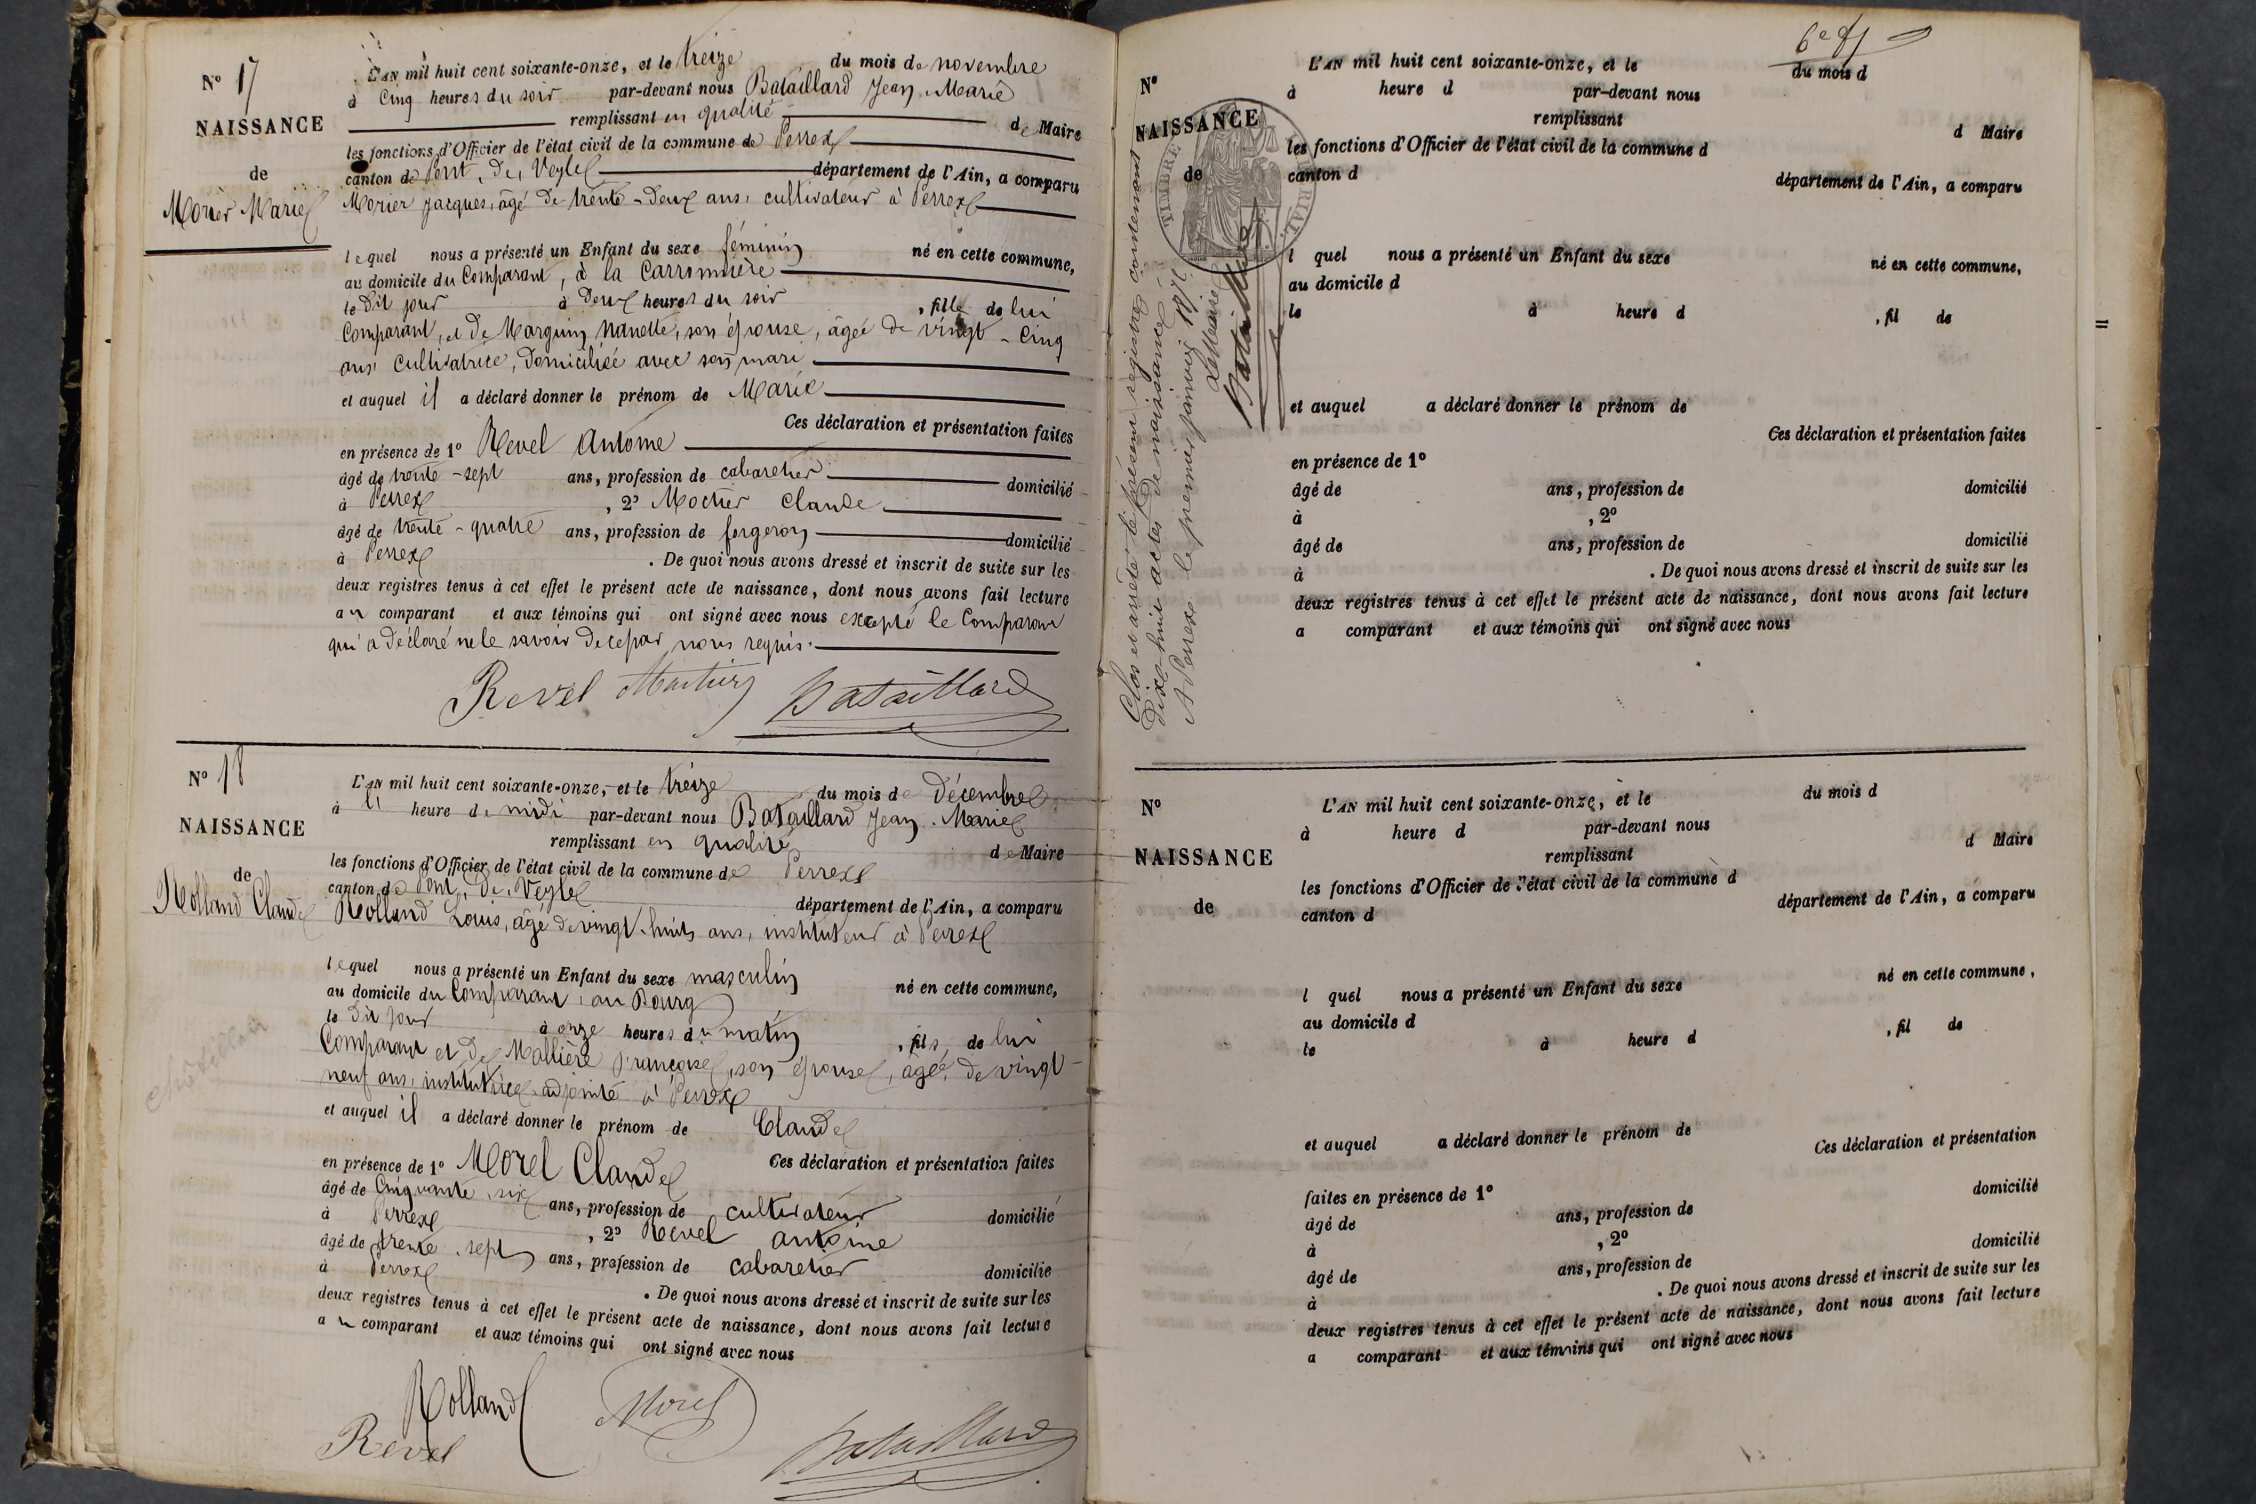 N° 17
NAISSANCE
de
Morier Marie
L'AN mil huit cent soixante-onze, et le treize du mois de novembre
à cinq heures du soir par-devant nous Bataillard Jean-Marie
remplissant en qualité de Maire
les fonctions d'Officier de l'état civil de la commune de Perrex
canton de Pont-de-Veyle département de l'Ain, a comparu
Morier Jacques, âgé de trente-deux ans, cultivateur à Perrex
lequel nous a présenté un Enfant du sexe féminin né en cette commune,
au domicile du Comparant, à la Carronnière
le dit jour à deux heures du soir, fille de lui
Comparant, et de Marguin Nanette, son épouse, âgée de vingt-cinq
ans, cultivatrice, domiciliée avec son mari
et auquel il a déclaré donner le prénom de Marie
Ces déclaration et présentation faites
en présence de 1° Revel Antoine
âgé de trente-sept ans, profession de cabaretier domicilié
à Perrex, 2° Claude
âgé de trente-quatre ans, profession de forgeron domicilié
à Perrex. De quoi nous avons dressé et inscrit de suite sur les
deux registres tenus à cet effet le présent acte de naissance, dont nous avons fait lecture
au comparant et aux témoins qui ont signé avec nous excepté le Comparant
qui a déclaré ne le savoir de ce par nous requis.
Revel Bataillard
N° 18
NAISSANCE
de
Rolland Claude
L'AN mil huit cent soixante-onze, et le treize du mois de décembre
à heure de midi par-devant nous Bataillard Jean-Marie
remplissant en qualité de Maire
les fonctions d'Officier de l'état civil de la commune de Perrex
canton de Pont-de-Veyle département de l'Ain, a comparu
Rolland Louis, âgé de vingt-huit ans, instituteur à Perrex
lequel nous a présenté un Enfant du sexe masculin né en cette commune,
au domicile du Comparant, au Bourg
le dit jour à onze heures du matin, fils de lui
Comparant et de Mallière Françoise, son épouse, âgée de vingt-
neuf ans, institutrice adjointe à Perrex
et auquel il a déclaré donner le prénom de Claude
Ces déclaration et présentation faites
en présence de 1° Morel Claude
âgé de Cinquante six ans, profession de cultivateur domicilié
à Perrex, 2° Revel antoine
âgé de trente sept ans, profession de cabaretier domicilié
à Perrex. De quoi nous avons dressé et inscrit de suite sur les
deux registres tenus à cet effet le présent acte de naissance, dont nous avons fait lecture
au comparant et aux témoins qui ont signé avec nous
Rolland Morel
Revel Bataillard
N°
NAISSANCE
de
TIMBRE
Clos et arrêté le présent registre contenant
dix-huit actes de naissance
A Perrex le premier janvier 1872
Le Maire
Bataillard
L'AN mil huit cent soixante-onze, et le du mois d
à heure d par-devant nous
remplissant d Maire
les fonctions d'Officier de l'état civil de la commune d
canton d département de l'Ain, a comparu
l quel nous a présenté un Enfant du sexe né en cette commune,
au domicile d
le à heure d, fil de
et auquel a déclaré donner le prénom de
Ces déclaration et présentation faites
en présence de 1°
âgé de ans, profession de domicilié
à, 2°
âgé de ans, profession de domicilié
à. De quoi nous avons dressé et inscrit de suite sur les
deux registres tenus à cet effet le présent acte de naissance, dont nous avons fait lecture
a comparant et aux témoins qui ont signé avec nous
N°
NAISSANCE
de
L'AN mil huit cent soixante-onze, et le du mois d
à heure d par-devant nous
remplissant d Maire
les fonctions d'Officier de l'état civil de la commune d
canton d département de l'Ain, a comparu
l quel nous a présenté un Enfant du sexe né en cette commune,
au domicile d
le à heure d, fil de
et auquel a déclaré donner le prénom de
Ces déclaration et présentation
faites en présence de 1°
âgé de ans, profession de domicilié
à, 2°
âgé de ans, profession de domicilié
à. De quoi nous avons dressé et inscrit de suite sur les
deux registres tenus à cet effet le présent acte de naissance, dont nous avons fait lecture
a comparant et aux témoins qui ont signé avec nous